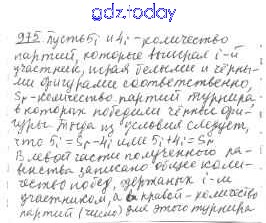 gdz.today
975 Пусть 5i и 4i - количество
партий, которые выиграл i-й
участник, играя белыми и чёрны-
ми фигурами соответственно,
Sr - количество партий турнира
в которых победили чёрные фи-
гуры. Тогда из условия следует,
что 5i = Sr - 4i или 5i + 4i = Sr
В левой части полученного ра-
венства записано общее коли-
чество побед, одержаных i-м
участником, а в правой - количество
партий (число) для этого турнира